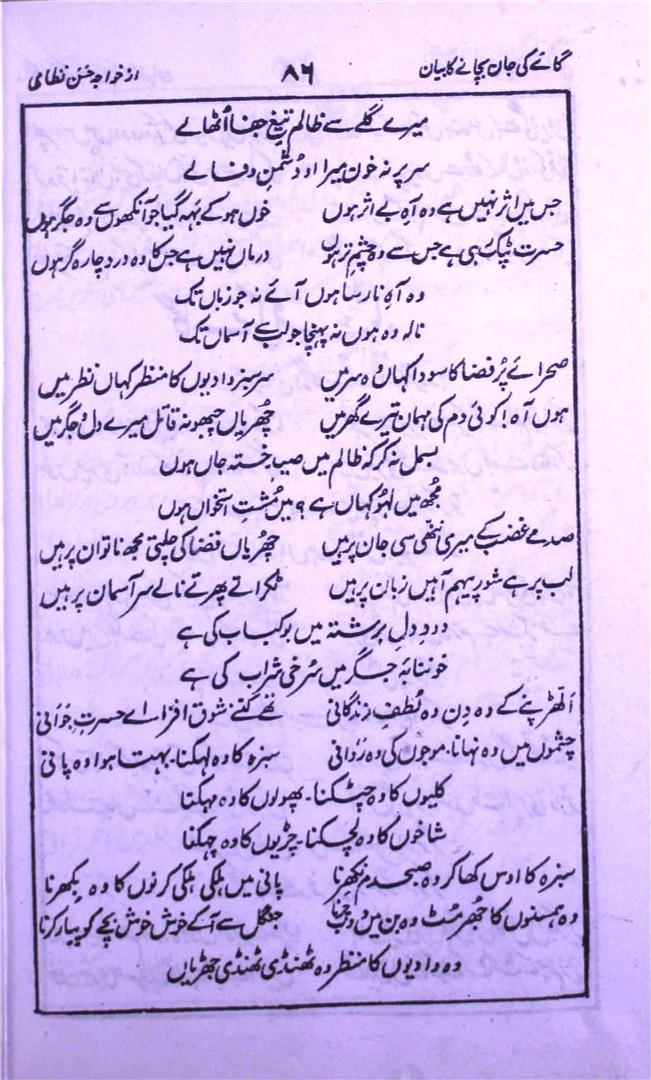 گائے کی جان بچانے کا بیان ۸۶ از خواجہ حسن نظامی
میرے گلے سے ظالم تیغِ جفا اُٹھالے
سر پر نہ خون میرا او دُشمنِ وفا لے
جس میں اثر نہیں ہے وہ آہِ بے اثر ہوں خوں ہو کے بہہ گیا جو آنکھوں سے وہ جگر ہوں
حسرت ٹپک رہی ہے جس سے وہ چشمِ تر ہوں درماں نہیں ہے جس کا وہ دردِ چارہ گر ہوں
وہ آہِ نارسا ہوں آئے نہ جو زباں تک
نالہ وہ ہوں نہ پہنچا جو لب سے آسماں تک
صحرائے پُر فضا کا سودا کہاں وہ سر میں سرسبز وادیوں کا منظر کہاں نظر میں
ہوں آہ! کوئی دم کی مہماں تیرے گھر میں چھریاں چبھو نہ قاتل میرے دل و جگر میں
بسمل نہ کر کہ ظالم میں صیدِ خستہ جاں ہوں
مجھ میں لہو کہاں ہے؟ میں مُشتِ استخواں ہوں
صدمے غضب کے میری ننھی سی جان پر ہیں چھریاں قضا کی چلتی مجھ ناتوان پر ہیں
لب پر ہے شور پیہم آہیں زبان پر ہیں ٹکراتے پھرتے نالے سر آسمان پر ہیں
دردِ دلِ برشتہ میں بو کباب کی ہے
خوننابۂ جگر میں سُرخی شراب کی ہے
الھڑپنے کے وہ دِن وہ لُطفِ زندگانی تھے کتنے شوق افزا اے حسرتِ جوانی
چشموں میں وہ نہانا۔ موجوں کی وہ روانی سبزہ کا وہ لہکنا۔ بہتا ہوا وہ پانی
کلیوں کا وہ چٹکنا۔ پھولوں کا وہ مہکنا
شاخوں کا وہ لچکنا۔ چڑیوں کا وہ چہکنا
سبزہ کا اوس کھا کر وہ صبحدم نکھرنا پانی میں ہلکی ہلکی کرنوں کا وہ بکھرنا
وہ ہمسنوں کا جھرمٹ وہ بن میں چرنا جنگل سے آکے خوش خوش بچے کو پیار کرنا
وہ وادیوں کا منظر وہ ٹھنڈی ٹھنڈی جھڑیاں